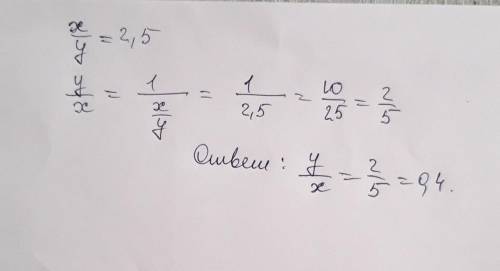 x/y = 2,5
y/x = 1/(x/y) = 1/2,5 = 10/25 = 2/5
Ответ: y/x = 2/5 = 0,4.